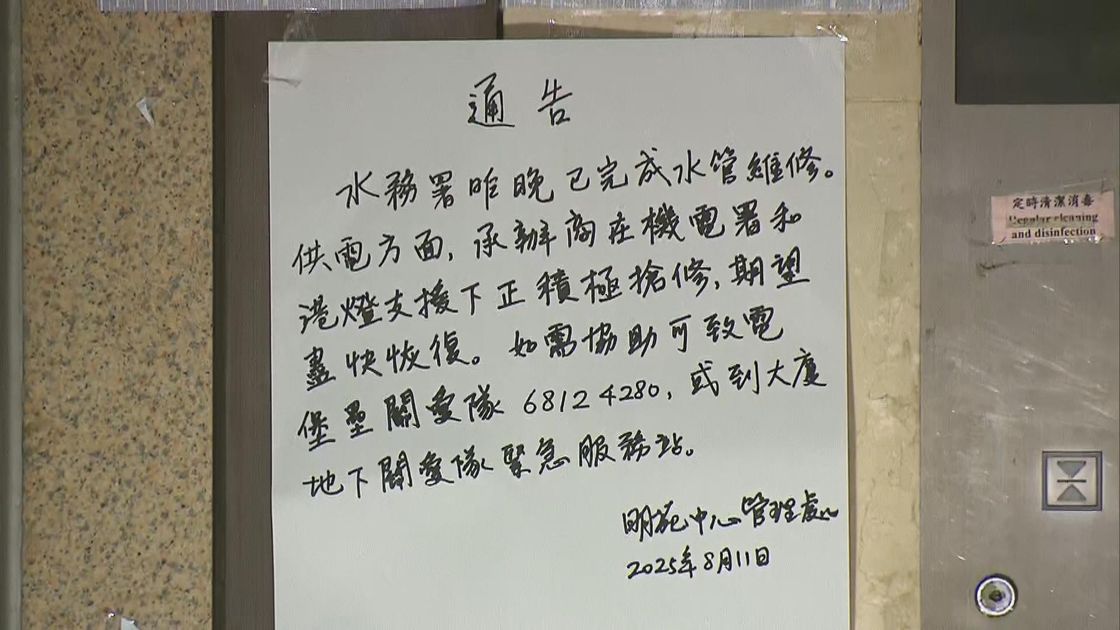 通告
水務署昨晚已完成水管維修。
供電方面,承辦商在機電署和
港燈支援下正積極搶修,期望
盡快恢復。如需協助可致電
堡壘關愛隊 6812 4280,或到大廈
地下關愛隊緊急服務站。
明苑中心管理處
2025年8月11日
定時清潔消毒
Regular cleaning
and disinfection